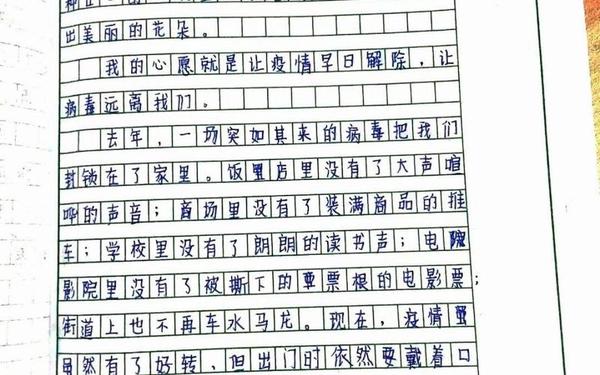 出美丽的花朵。
我的心愿就是让疫情早日解除,让
病毒远离我们。
去年,一场突如其来的病毒把我们
封锁在了家里。饭店里没有了大声喧
哗的声音;商场里没有了装满商品的推
车;学校里没有了朗朗的读书声;电
影院里没有了被撕下的票根的电影票;
街道上也不再车水马龙。现在,疫情
虽然有了好转,但出门时依然要戴着口